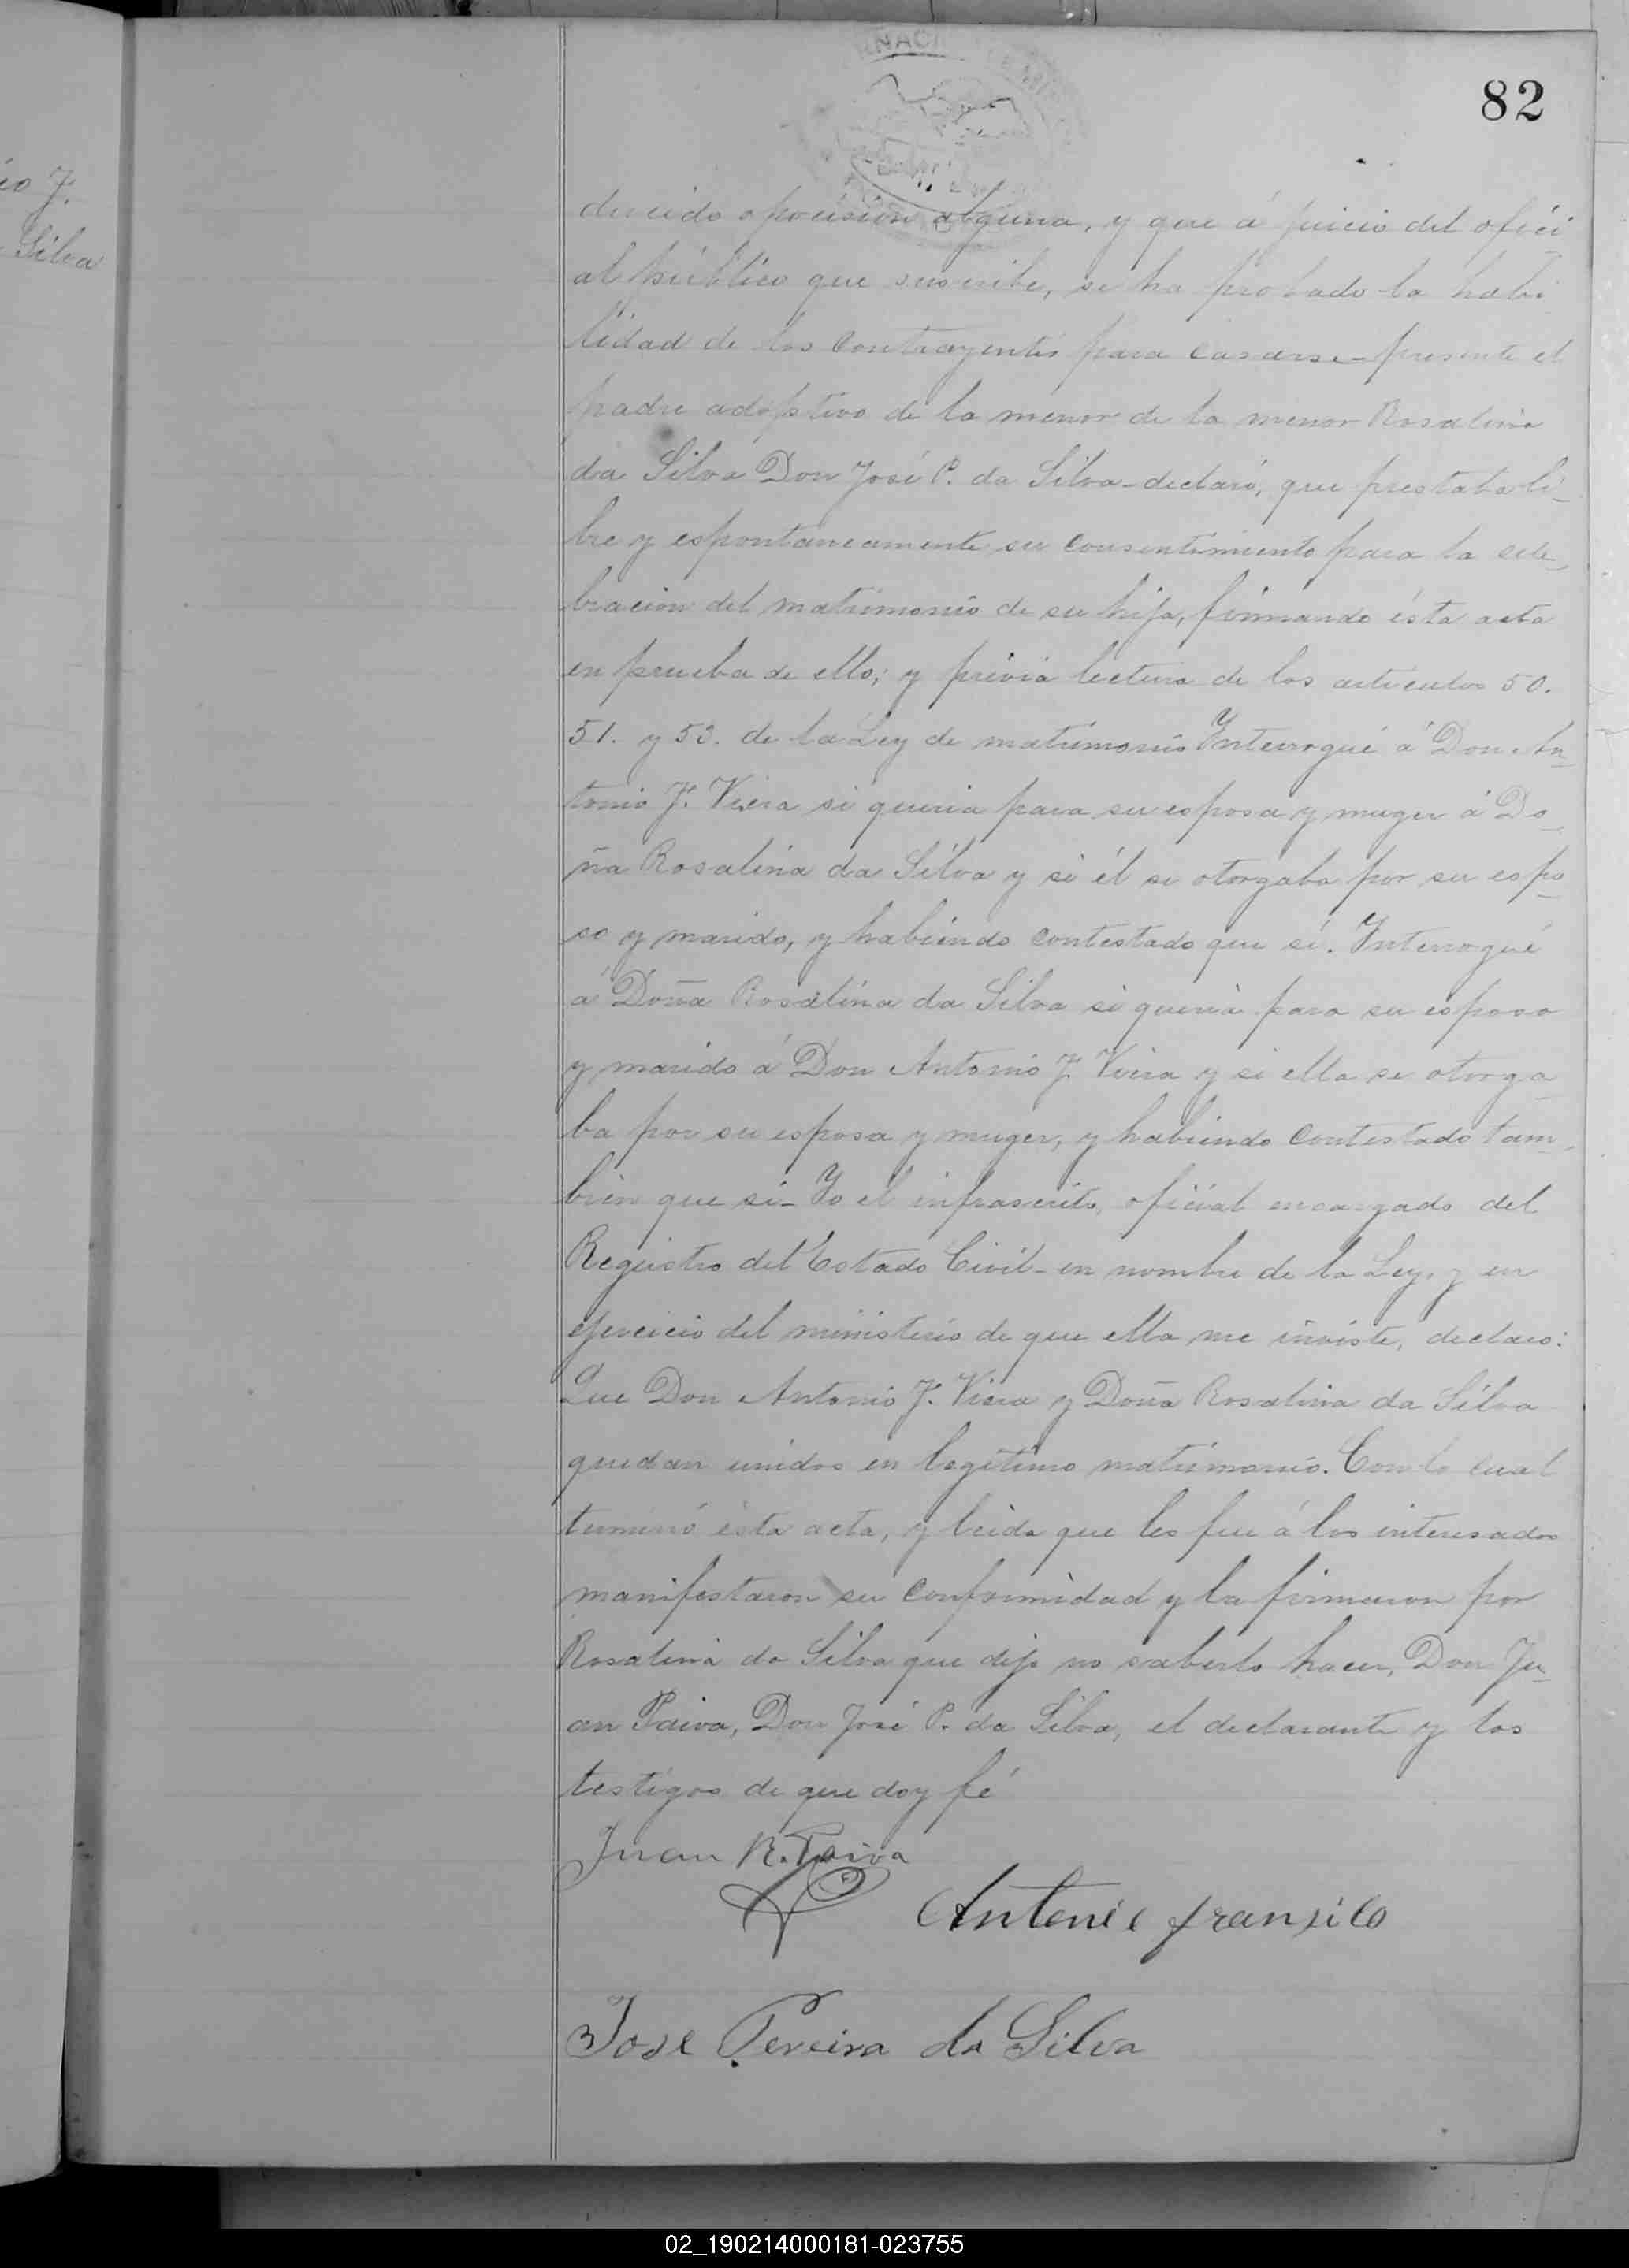 82
io J.
Silva
ducido oposision alguna, y que á juicio del ofici
al público que suscribe, se ha probado la habi
lidad de los contrayentes para casarse_ presente el
padre adoptivo de la menor de la menor Rosalina
da Silva Don José P. da Silva_ declaró, que prestaba li_
bre y espontaneamente su consentimiento para la cele_
bracion del matrimonio de su hija, firmando ésta acta
en prueba de ello; y prévia lectura de los articulos 50.
51. y 53. de la Ley de matrimonio Interrogué á Don An_
tonio J. Vieira si queria para su esposa y muger á Do_
ña Rosalina da Silva y si él se otorgaba por su espo_
so y marido, y habiendo contestado que sí. Interrogué
á Doña Rosalina da Silva si queria para su esposo
y marido á Don Antonio J. Vieira y si ella se otorga_
ba por su esposa y muger, y habiendo contestado tam_
bien que si_ Yo el infrascrito, oficial encargado del
Registro del Estado Civil_ en nombre de la Ley, y en
ejercicio del ministerio de que ella me inviste, declaro:
Que Don Antonio J. Vieira y Doña Rosalina da Silva
quedan unidos en legitimo matrimonio. Con lo cual
terminó ésta acta, y leida que les fue á los interesados
manifestaron su conformidad y la firmaron por
Rosalina da Silva que dijo no saberlo hacer, Don Ju_
an Paiva, Don José P. da Silva, el declarante y los
testigos de que doy fé
Juan R. Paiva
Antonio fransico
Jose Pereira da Silva
02_190214000181-023755